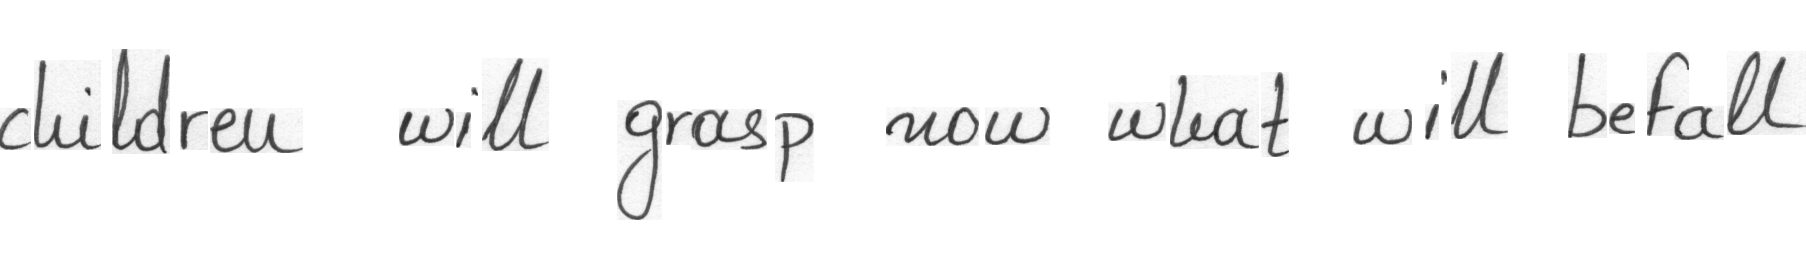 children will grasp now what will befall